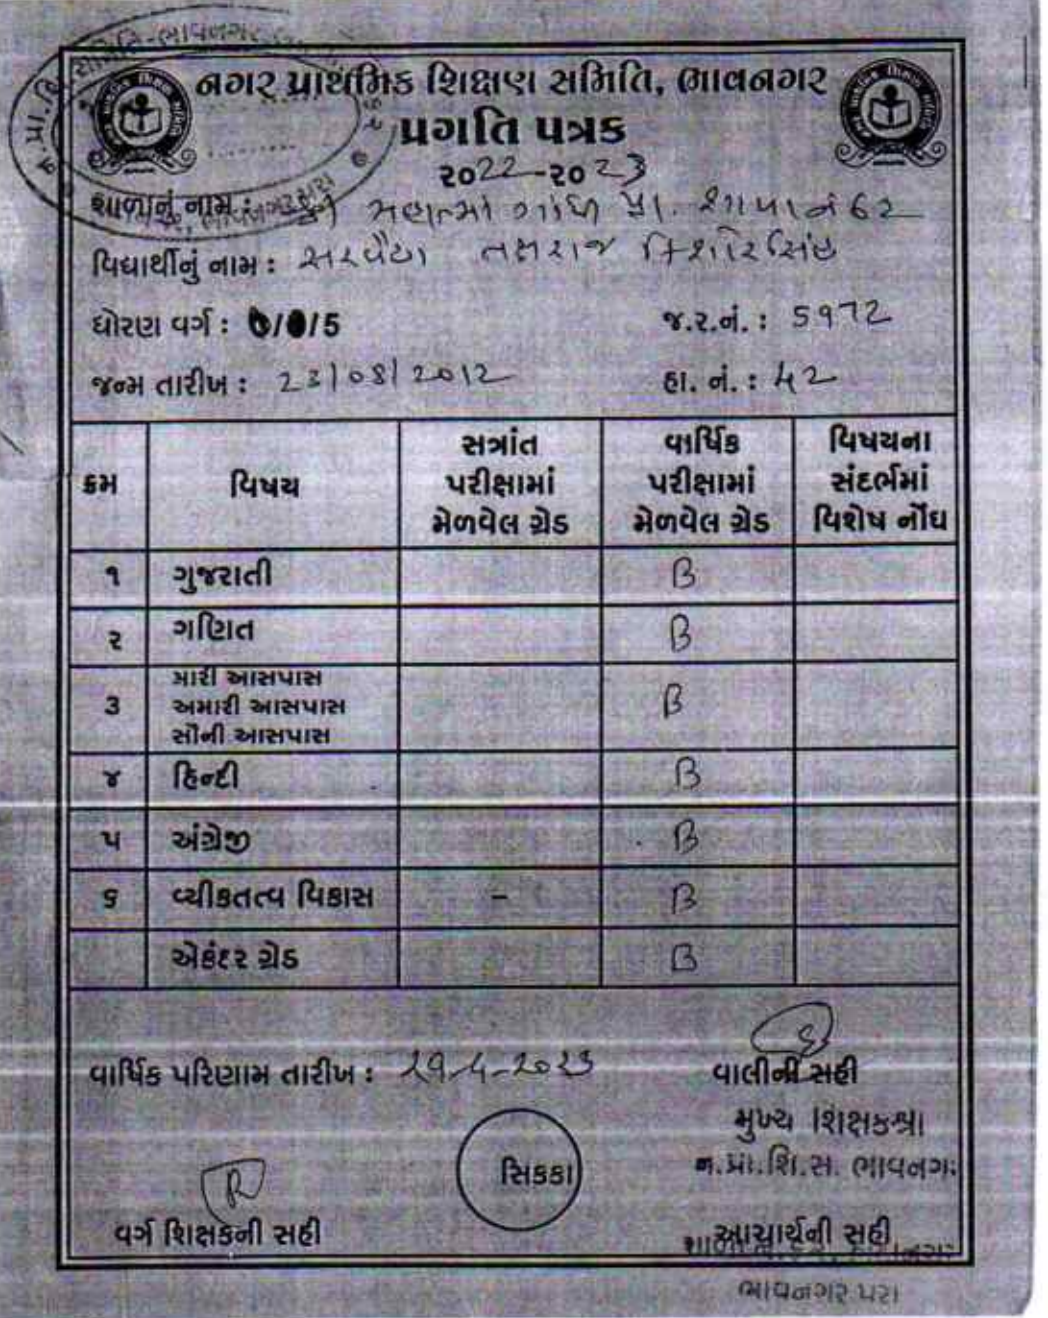 નગર પ્રાથમિક શિક્ષણ સમિતિ, ભાવનગર
પ્રગતિ પત્રક
૨૦22-૨૦23
શાળાનું નામ : શ્રી મહાત્મા ગાંધી પ્રા. શાળા નં 62
વિદ્યાર્થીનું નામ : સરવૈયા તક્ષરાજ કિશોરસિંહ
ધોરણ વર્ગ : /5
જ.ર.નં. : 5972
જન્મ તારીખ : 23/08/2012
હા. નં. : 42
ક્રમ વિષય સત્રાંત પરીક્ષામાં મેળવેલ ગ્રેડ વાર્ષિક પરીક્ષામાં મેળવેલ ગ્રેડ વિષયના સંદર્ભમાં વિશેષ નોંધ
૧ ગુજરાતી B
૨ ગણિત B
૩ મારી આસપાસ અમારી આસપાસ સૌની આસપાસ B
૪ હિન્દી B
૫ અંગ્રેજી B
૬ વ્યીકતત્વ વિકાસ - B
એકંદર ગ્રેડ B
વાર્ષિક પરિણામ તારીખ : 29-4-2023
વાલીની સહી
મુખ્ય શિક્ષકશ્રી
ન.પ્રા.શિ.સ. ભાવનગર
સિક્કો
વર્ગ શિક્ષકની સહી
આચાર્યની સહી
ભાવનગર પરા